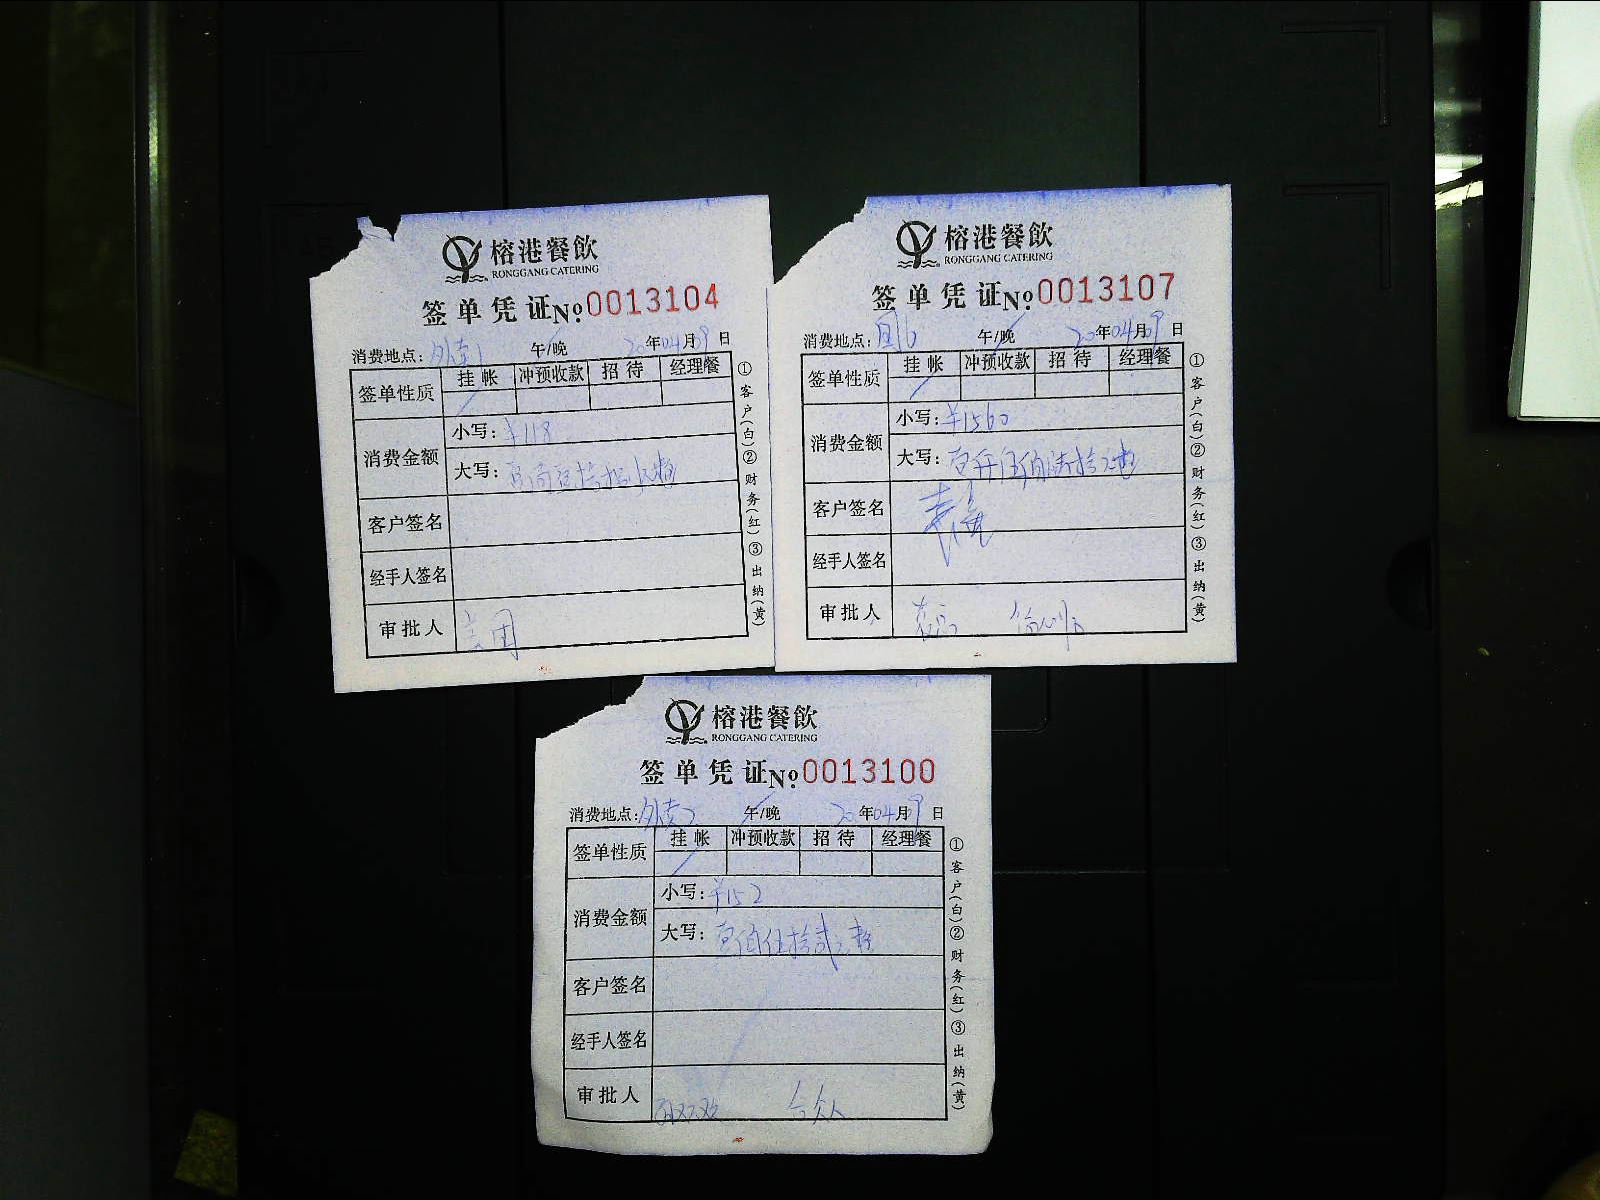 榕港餐飲
RONGGANG CATERING
签单凭证 No 0013104
消费地点: 外卖1 午/晚 20年04月09日
签单性质 挂帐 冲预收款 招待 经理餐
消费金额 小写: ¥118
大写:
客户签名
经手人签名
审批人
①客户(白)②财务(红)③出纳(黄)
榕港餐飲
RONGGANG CATERING
签单凭证 No 0013107
消费地点: 午/晚 20年04月09日
签单性质 挂帐 冲预收款 招待 经理餐
消费金额 小写: ¥1560
大写: 壹仟伍佰陆拾元整
客户签名
经手人签名
审批人
①客户(白)②财务(红)③出纳(黄)
榕港餐飲
RONGGANG CATERING
签单凭证 No 0013100
消费地点: 外卖2 午/晚 20年04月09日
签单性质 挂帐 冲预收款 招待 经理餐
消费金额 小写: ¥152
大写: 壹佰伍拾贰元整
客户签名
经手人签名
审批人
①客户(白)②财务(红)③出纳(黄)